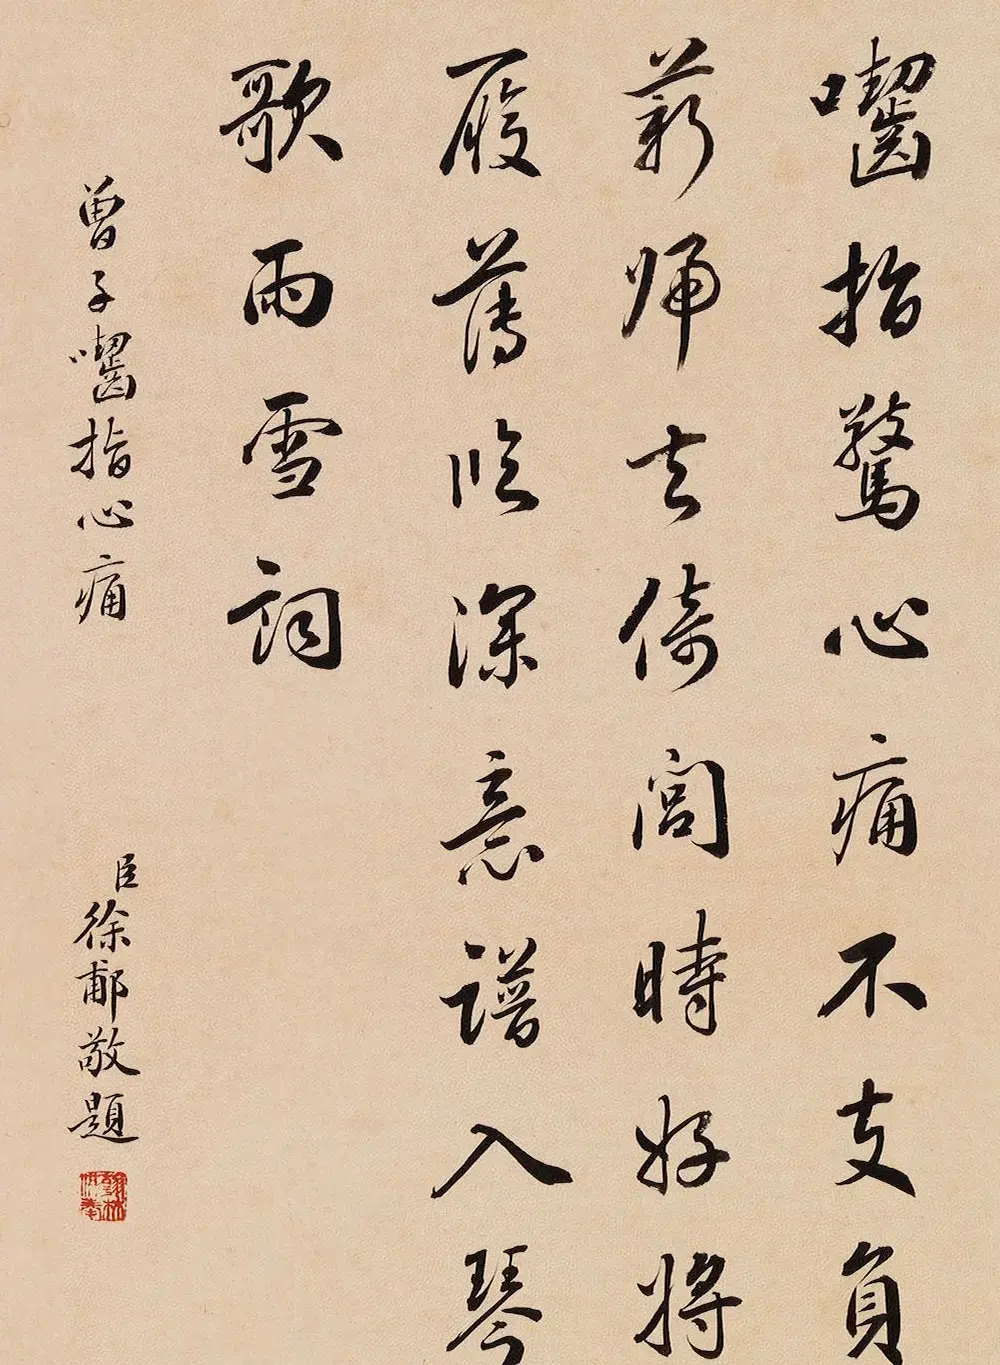 囓指驚心痛不支負
薪歸去倚閭時好將
履薄臨深意譜入琴
歌雨雪詞
曾子囓指心痛
臣徐郙敬題
翰林供奉